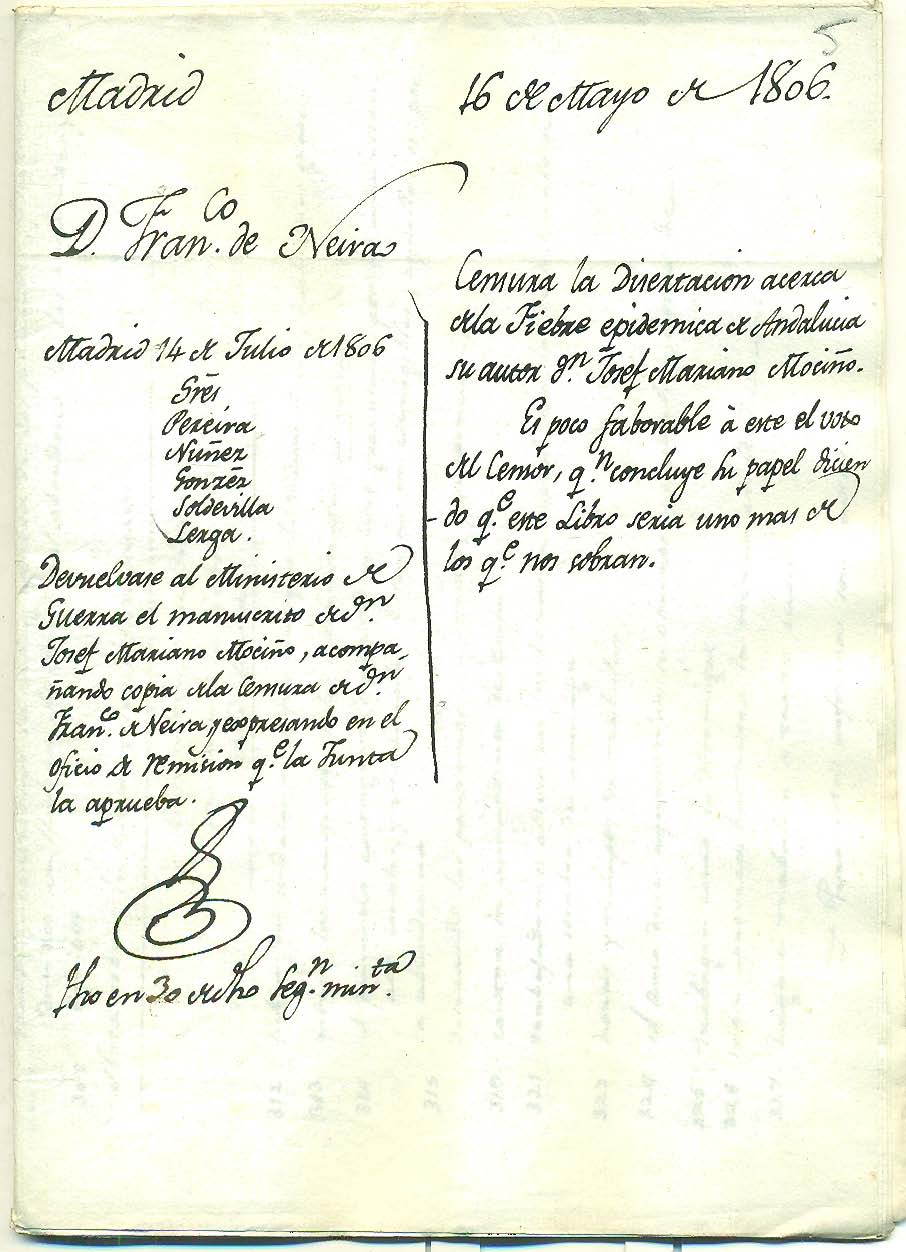 5
Madrid 16 de Mayo de 1806.
D. Fran.co de Neira
Censura la Disertacion acerca
de la Fiebre epidemica de Andalucia
su autor d.n Josef Mariano Mociño.
Es poco faborable à este el voto
del Censor, q.n concluye su papel dicien
do q.e este Libro seria uno mas de
los q.e nos sobran.
Madrid 14 de Julio de 1806
Sres
Pereira
Nuñez
Gonzz
Soldevilla
Lerga.
Devuelvase al Ministerio de
Guerra el manuscrito de d.n
Josef Mariano Mociño, acompa-
ñando copia de la Censura de d.n
Fran.co de Neira, y expresando en el
oficio de remision q.e la Junta
la aprueba.
fho en 30 de dho seg.n min.ta